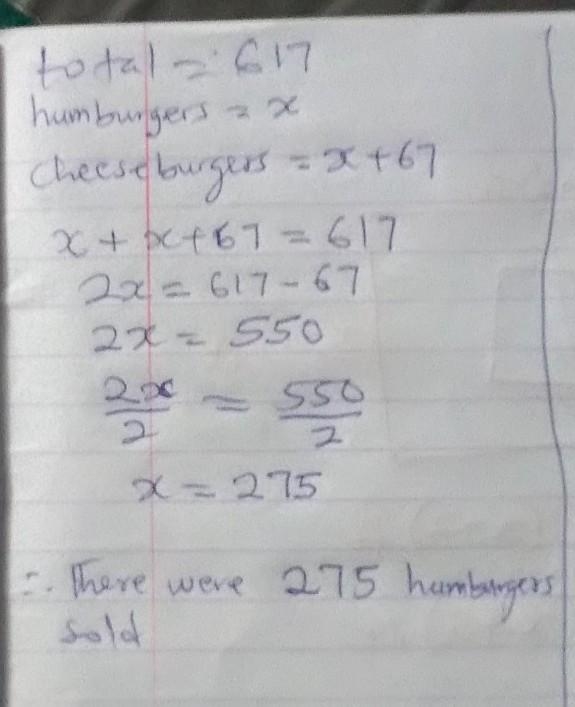 total = 617
humburgers = x
cheeseburgers = x + 67
x + x + 67 = 617
2x = 617 - 67
2x = 550
2x/2 = 550/2
x = 275
∴ There were 275 humburgers
sold